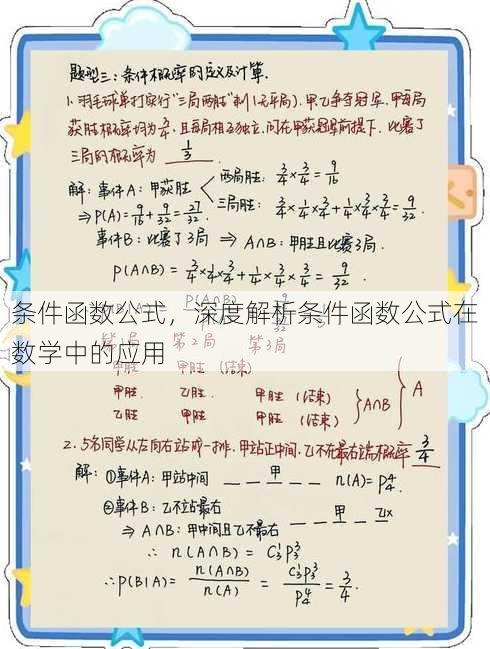 题型三:条件概率的定义及计算.
1.羽毛球单打实行“三局两胜”制(无平局).甲乙争夺冠军.甲每局
获胜概率均为3/4,且每局相互独立,问在甲获冠军前提下,比赛了
三局的概率为 1/3 .
解:事件A:甲获胜
两局胜: 3/4×3/4=9/16
三局胜: 3/4×1/4×3/4+1/4×3/4×3/4=9/32.
⇒P(A)=9/16+9/32=27/32.
事件B:比赛了3局 ⇒ A∩B:甲胜且比赛3局.
P(A∩B)=3/4×1/4×3/4+1/4×3/4×3/4=9/32.
条件函数公式,深度解析条件函数公式在
数学中的应用
第2局 第3局
甲胜 甲胜(结束)
甲胜. 乙胜 甲胜(结束)
乙胜 甲胜 甲胜(结束)
A∩B
A
2.5名同学从左向右站成一排.甲站正中间.乙不在最右端概率 3/4
解:①事件A:甲站中间 _ _ 甲 _ _ n(A)=P⁴₄.
②事件B:乙不站最右
⇒ A∩B:甲中间且乙不最右 _ _ 甲 _ 乙×
∴ n(A∩B)=C¹₃P³₃
∴P(B|A)=n(A∩B)/n(A)=C¹₃P³₃/P⁴₄=3/4.